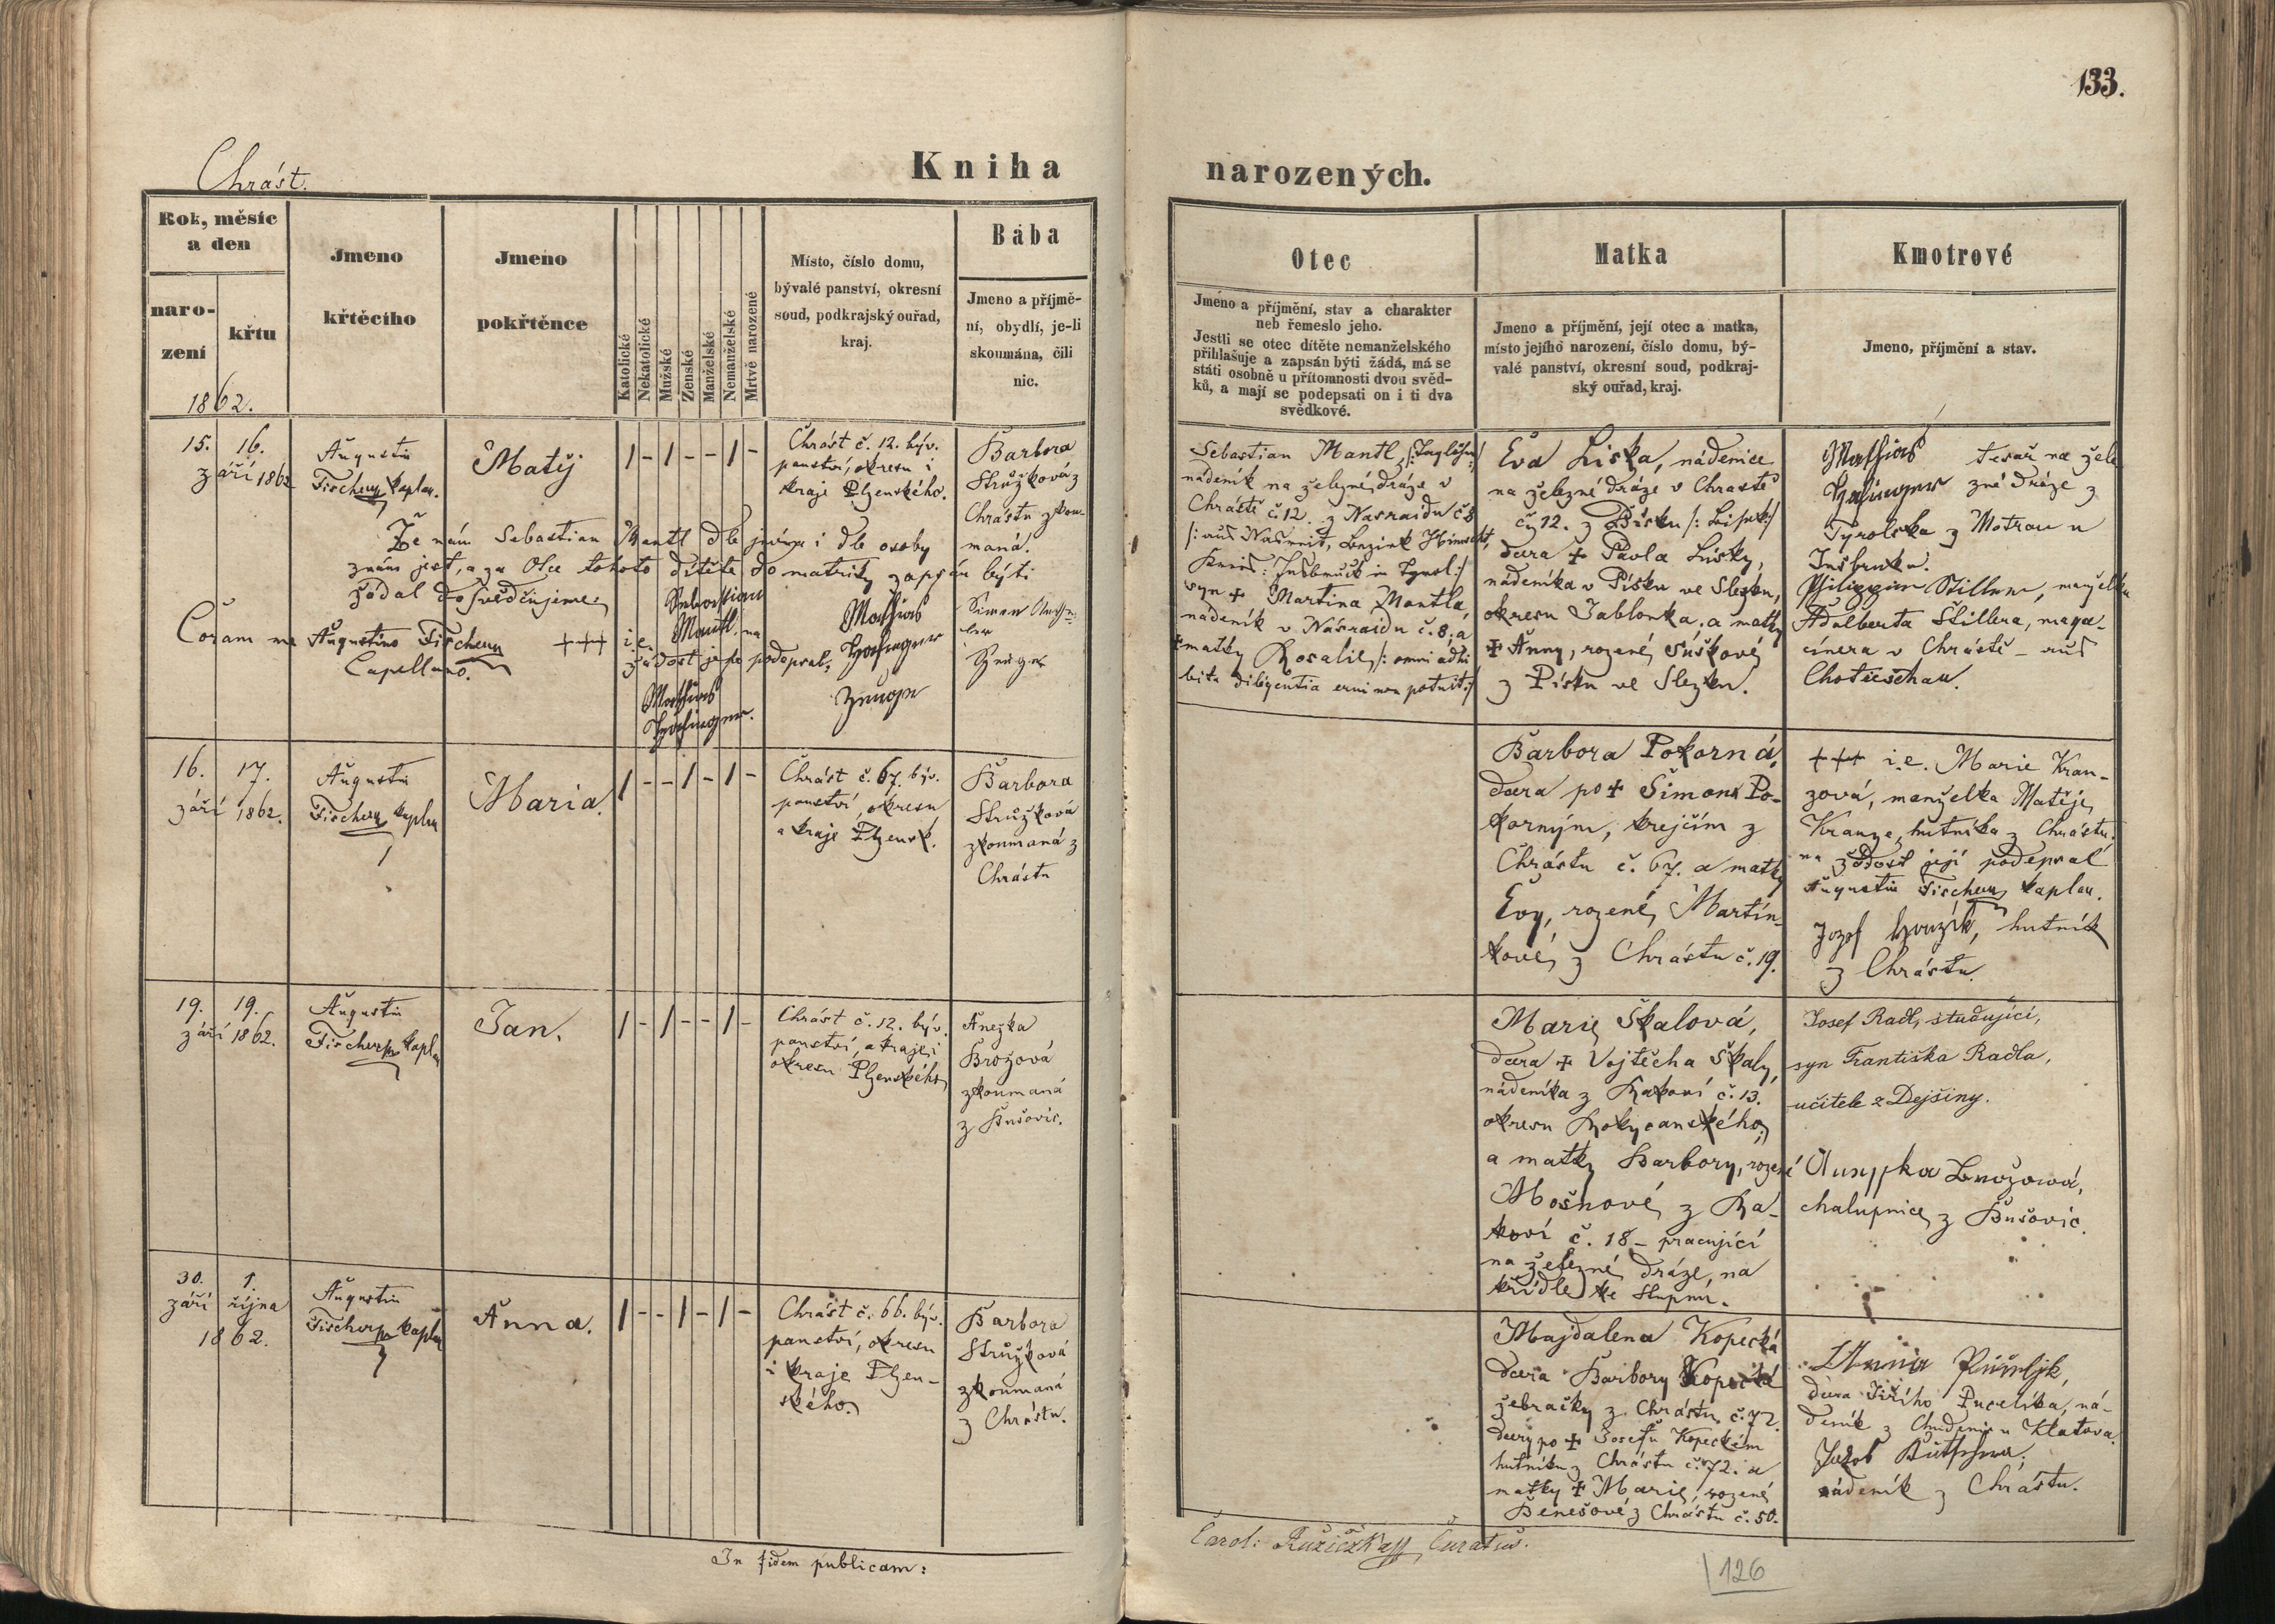 133.
Chrást.
Kniha narozených.
Rok, měsíc
a den
naro-
zení
křtu
1862.
Jmeno
křtěcího
Jmeno
pokřtěnce
Katolické
Nekatolické
Mužské
Ženské
Manželské
Nemanželské
Mrtvě narozené
Místo, číslo domu,
bývalé panství, okresní
soud, podkrajský ouřad,
kraj.
Bába
Jmeno a příjmě-
ní, obydlí, je-li
skoumána, čili
nic.
Otec
Jméno a příjmění, stav a charakter
neb řemeslo jeho.
Jestli se otec dítěte nemanželského
přihlašuje a zapsán býti žádá, má se
státi osobně u přítomnosti dvou svěd-
ků, a mají se podepsati on i ti dva
svědkové.
Matka
Jmeno a příjmění, její otec a matka,
místo jejího narození, číslo domu, bý-
valé panství, okresní soud, podkraj-
ský ouřad, kraj.
Kmotrové
Jmeno, příjmění a stav.
15. 16.
září 1862
Augustin
Fischer, kaplan.
Matěj
1 - 1 - - 1 -
Chrást č. 12. býv.
panství, okresu i
kraje Plzenského.
Barbora
Stružková z
Chrástu zkou-
maná.
Že nám Sebastian Mantl dle jména i dle osoby
znám jest, a za Otce tohoto dítěte do matriky zapsán býti
žádal dosvědčujeme;
Coram me Augustino Fischer
Capellano.
+++ i.e. Sebastian
Mantl. na
žádost jeho podepsal,
Mathias
Simon
Sebastian Mantl,
nádeník na železné dráze v
Chrástě č. 12. z Nasraidu č. 8
syn + Martina Mantla,
nádeník v Násraidu č. 8. a
+ matky Rosalie, /: omni adhi
bita diligentia erui non potuit :/
Eva Liska, nádenice
na železné dráze v Chrastě
č. 12. z Písku
dcera + Pavla Lisky,
nádeníka v Písku ve Slezku,
okresu Jablonka, a matky
+ Anny, rozené Suškové
z Písku ve Slezku.
Mathias tesař na žele
zné dráze z
Tyrolska z Motrau u
Inšbruku.
Philippine Stiller, manželka
Adalberta Stillera, maga-
cinera v Chrástě - aus
Chotieschau.
16. 17.
září 1862.
Augustin
Fischer, kaplan
Maria.
1 - - 1 - 1 -
Chrást č. 67. býv.
panství, okresu
a kraje Plzensk.
Barbora
Stružková
zkoumaná z
Chrástu
Barbora Pokorná,
dcera po + Šimonu Po-
korným, krejčím z
Chrástu č. 67. a matky
Evy, rozené Martín-
kové, z Chrástu č. 19.
+++ i.e. Marie Kran-
zová, manželka Matěje
Kranze, hutníka z Chrástu,
na žádost její podepsal
Augustin Fischer, kaplan.
Jozef hutník
z Chrástu.
19. 19.
září 1862.
Augustin
Fischer, kaplan
Jan.
1 - 1 - - 1 -
Chrást č. 12. býv.
panství, a kraje i
okresu Plzenského
Anežka
Brožová
zkoumaná
z Bušovic.
Marie Škalová,
dcera + Vojtěcha Škaly,
nádeníka z Kakoví č. 13.
okresu Rokycanského,
a matky Barbory, rozené
Mošnové, z Ka-
koví č. 18 - pracující
na železné dráze, na
křídle ke Stupnu.
Josef Radl, študující,
syn Františka Radla,
učitele z Dejšiny.
Brožowá,
chalupnice z Bušovic.
30. 1.
září října
1862.
Augustin
Fischer, kaplan
Anna.
1 - - 1 - 1 -
Chrást č. 66. býv.
panství, okresu
i kraje Plzen-
ského.
Barbora
Stružková
zkoumaná
z Chrástu.
Majdalena Kopecká
dcera Barbory Kopecké
žebračky z Chrástu č. 72.
dcery po + Josefu Kopeckém
hutníku z Chrástu č. 72. a
matky + Marie, rozené
Benešové z Chrástu č. 50.
Anna
dcera Jiřího Pucelíka, ná-
deník z Chudenic u Klatova.
Jakob
nádeník z Chrástu.
In fidem publicam:
Carol: Růžiczka, Curatus.
126